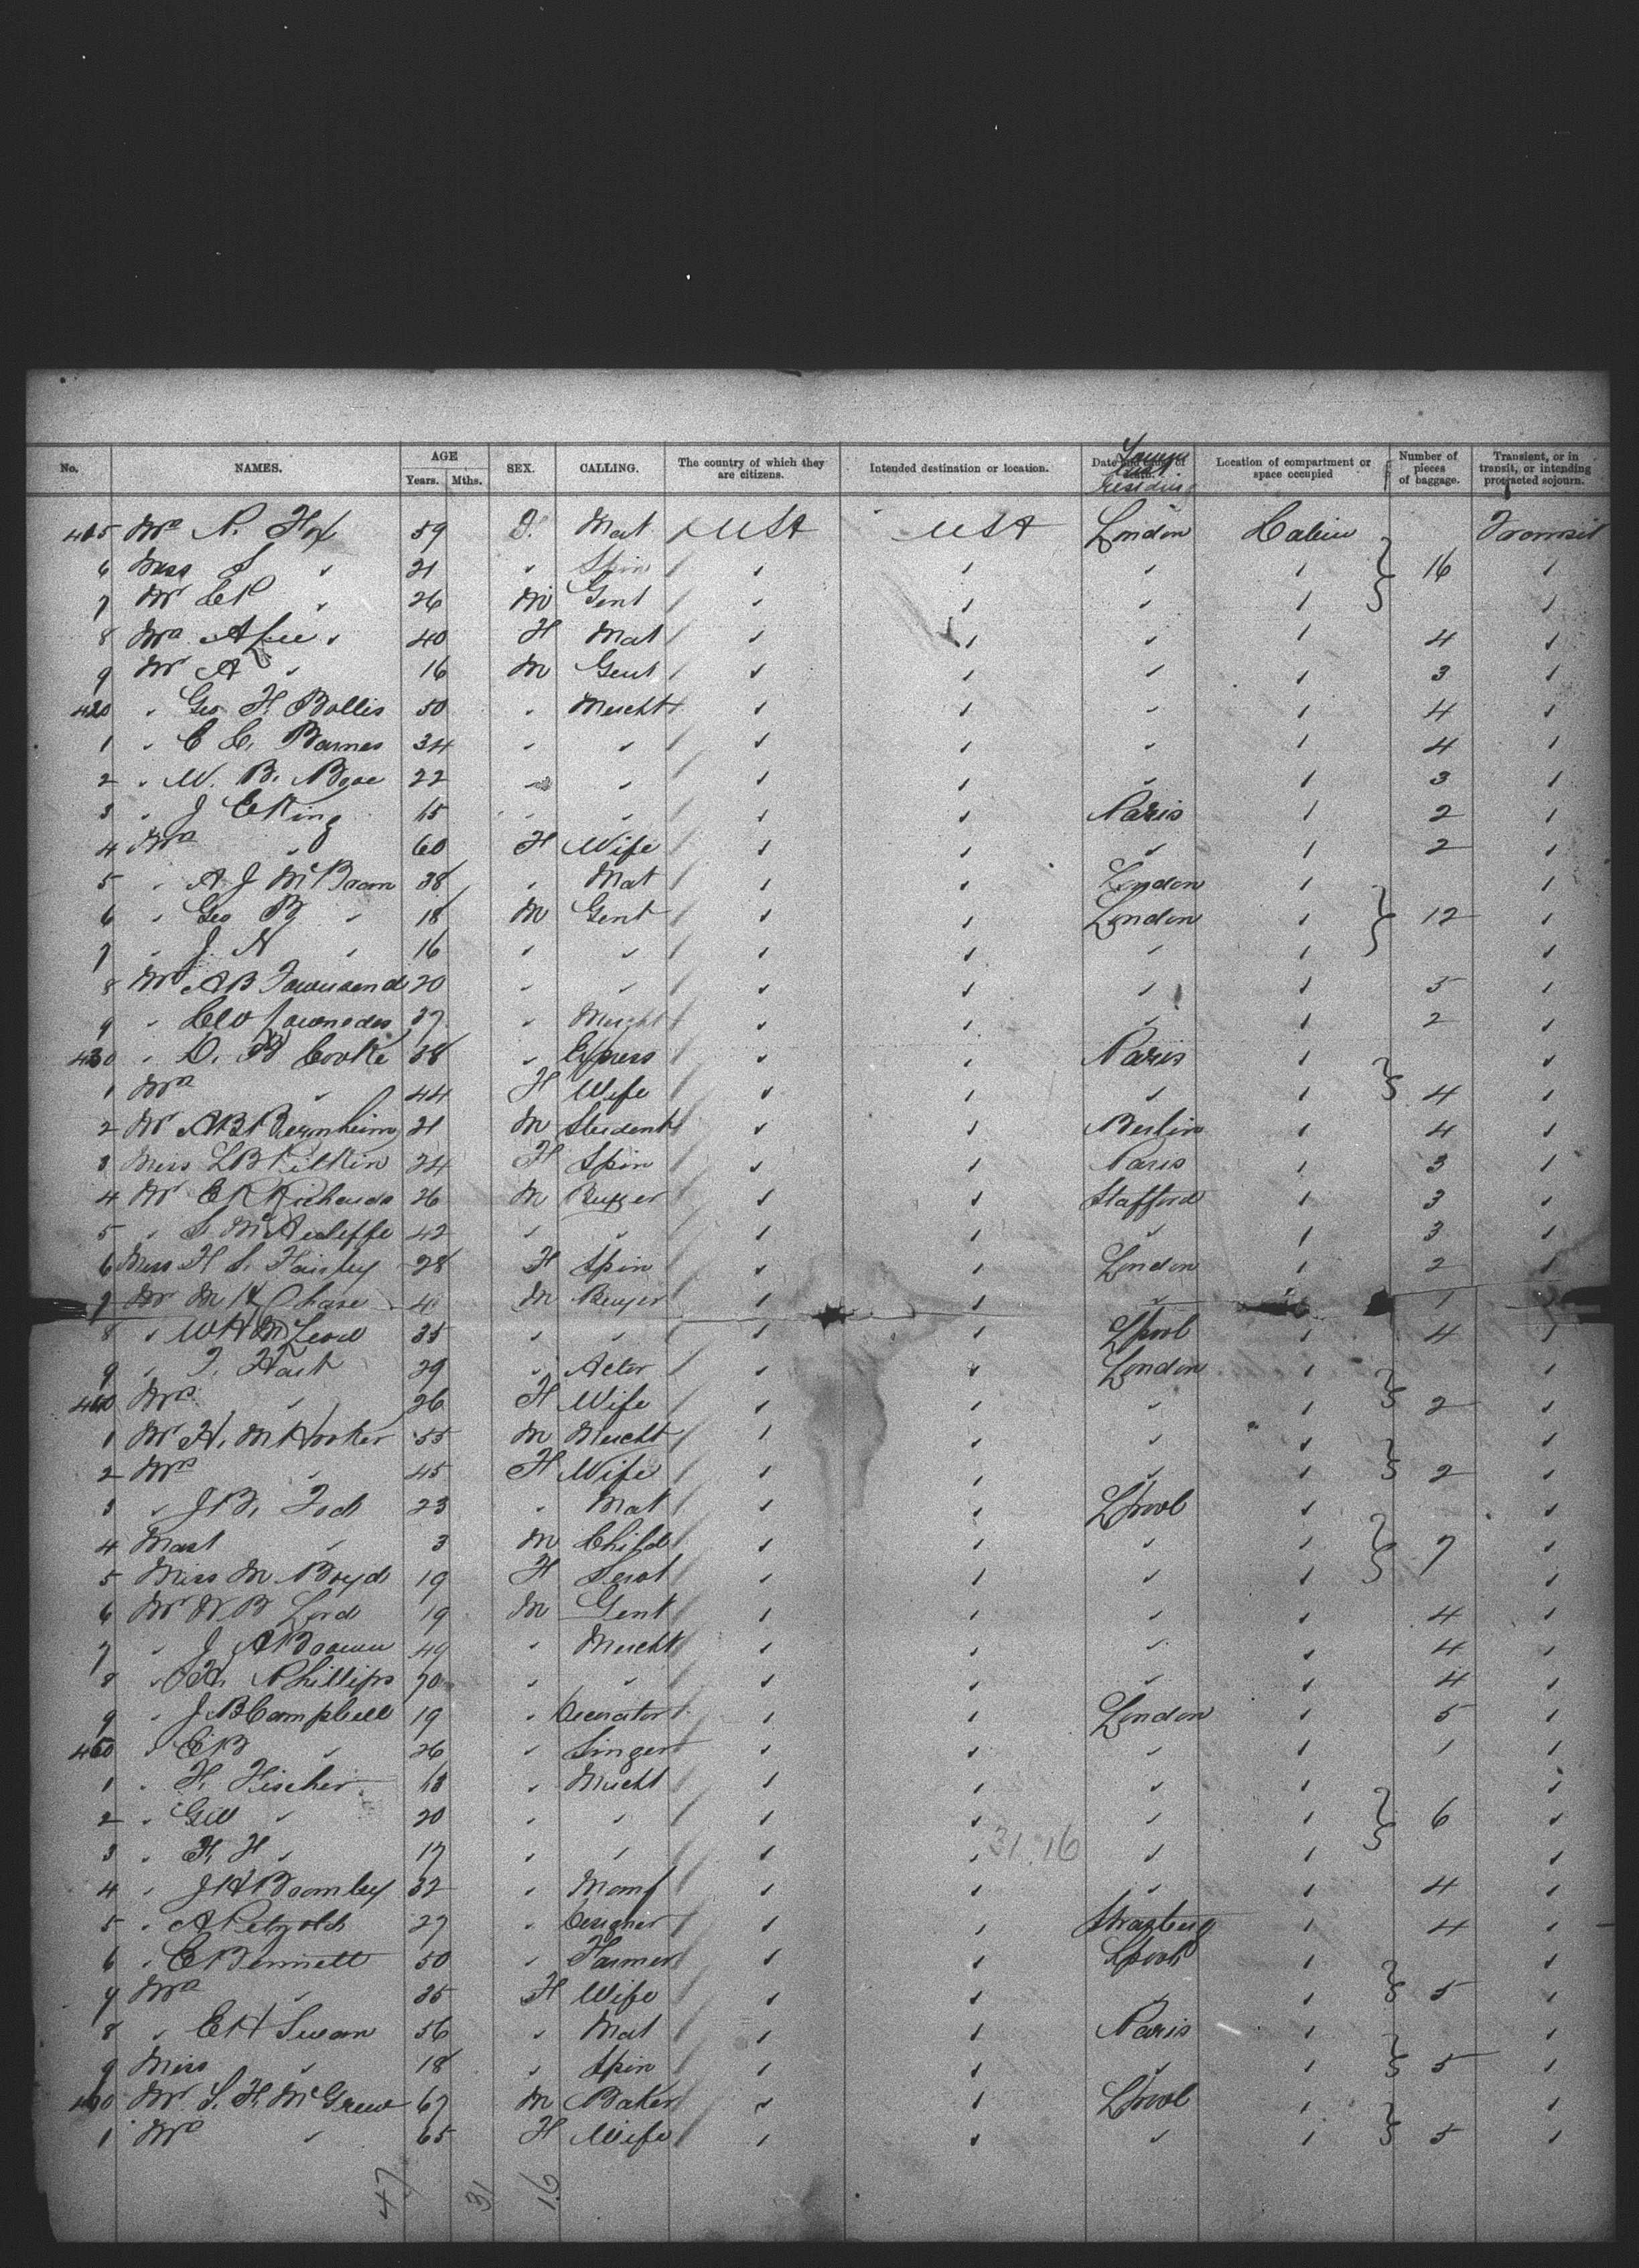 No. NAMES. AGE Years. Mths. SEX. CALLING. The country of which they are citizens. Intended destination or location. Date and cause of death. Location of compartment or space occupied Number of pieces of baggage. Transient, or in transit, or intending protracted sojourn.
residing
415 Mrs 59 Mat USA USA London Cabin Transit
6 Miss " 21 " Spin " " " " 16 "
7 Mr " 26 M Gent " " " " "
8 Mrs " 40 F Mat " " " " 4 "
9 Mr A " 16 M Gent " " " " 3 "
420 " Geo F. 50 " Mercht " " " " 4 "
1 " C C. Barnes 34 " " " " " " 4 "
2 " W. B. 22 " " " " " " 3 "
3 " J C King 65 " " " " Paris " 2 "
4 Mrs " 60 F Wife " " " " 2 "
5 " A J McBroom 38 " Mat " " London " "
6 " Geo B " 18 M Gent " " London " 12 "
7 " J. H " 16 " " " " " " "
8 Mr A B Townsend 20 " " " " " " 5 "
9 " 37 " " " " " 2 "
430 " D. B Cooke 38 " Express " " Paris " "
1 Mrs " 44 F Wife " " " " 4 "
2 Mr A B Bernheim 21 M Student " " Berlin " 4 "
3 Miss L B Pilkin 24 F Spin " " Paris " 3 "
4 Mr E R Richards 26 M Buyer " " Stafford " 3 "
5 " S. McAuliffe 42 " " " " " " 3 "
6 Miss H S. 28 F Spin " " London " 2 "
7 Mr M H Chase M Buyer " " " " 1 "
8 " W H McLeod 35 " " " " Lpool " 4 "
9 " T. Hart 29 " Actor " " London " "
440 Mrs " 26 F Wife " " " " 2 "
1 Mr H. M Hooker 55 M Mercht " " " " "
2 Mrs " 45 F Wife " " " " 2 "
3 " J B. Tod 23 " Mat " " Lpool " "
4 Mast " 3 M Child " " " " 7 "
5 Miss M Boyd 19 F Servt " " " " "
6 Mr W B Lord 19 M Gent " " " " 4 "
7 " J A Brown 49 " Mercht " " " " 4 "
8 " Phillips 70 " " " " " " 4 "
9 " J B Campbell 19 " Decorator " " London " 5 "
450 " E B " 26 " Singer " " " " 1 "
1 " F. Fischer 18 " Mercht " " " " "
2 " " 20 " " " " " " 6 "
3 " F. H " 17 " " " " " " "
31.16
4 " J H Bromley 32 " Manf " " " " 4 "
5 " A Petzold 27 " Designer " " Strazburg " 4 "
6 " E Bennett 50 " Farmer " " Lpool " "
7 Mrs " 35 F Wife " " " " 5 "
8 " E H Swan 56 " Mat " " Paris " "
9 Miss " 18 " Spin " " " " 5 "
460 Mr S. H. McGrew 67 M Baker " " Lpool " "
1 Mrs " 65 F Wife " " " " 5 "
47 31 16